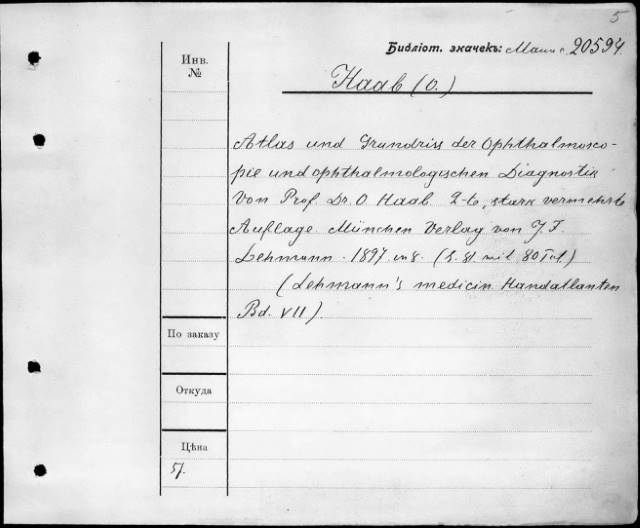 5
Библіот. значекъ: Маши с. 20594.
Инв.
№
Haab (O.)
Atlas und Grundriss der Ophthalmosco-
pie und ophthalmologischen Diagnostik
Von Prof. Dr. O Haab. 2-te, stark vermehrte
Auflage. München Verlag von J. F.
Lehmann. 1897. in 8. (S. 81 mit 80 Taf.)
(Lehmann's medicin Handatlanten
Bd. VII).
По заказу
Откуда
Цѣна
5/.